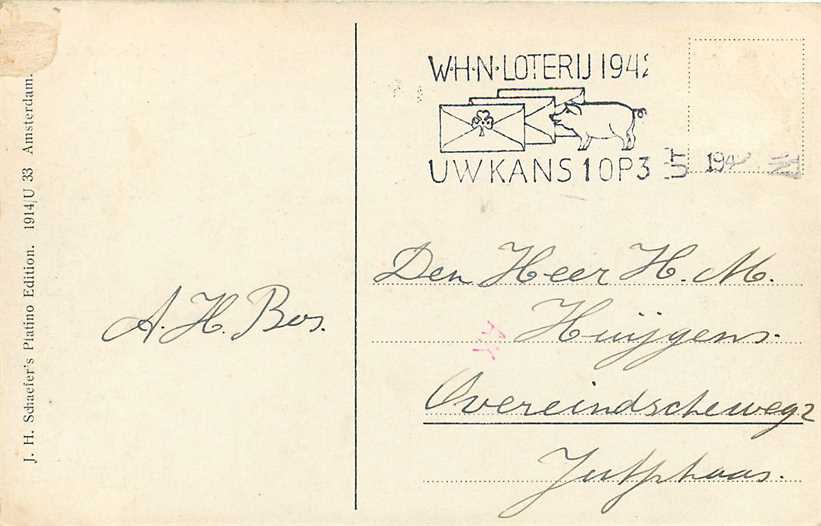 J. H. Schaefer's Platino Edition. 1914/U 33 Amsterdam.
W·H·N·LOTERIJ 1942
UW KANS 1 OP 3
UT 194
A. H. Bos.
Den Heer H. M.
Huijgens.
Overeindscheweg 2
Jutphaas.